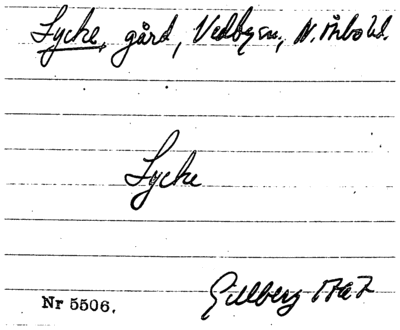 Lycke, gård, Vedbysn, N. Åsbo hd.
Lycke
Gillberg 1767
Nr 5506.